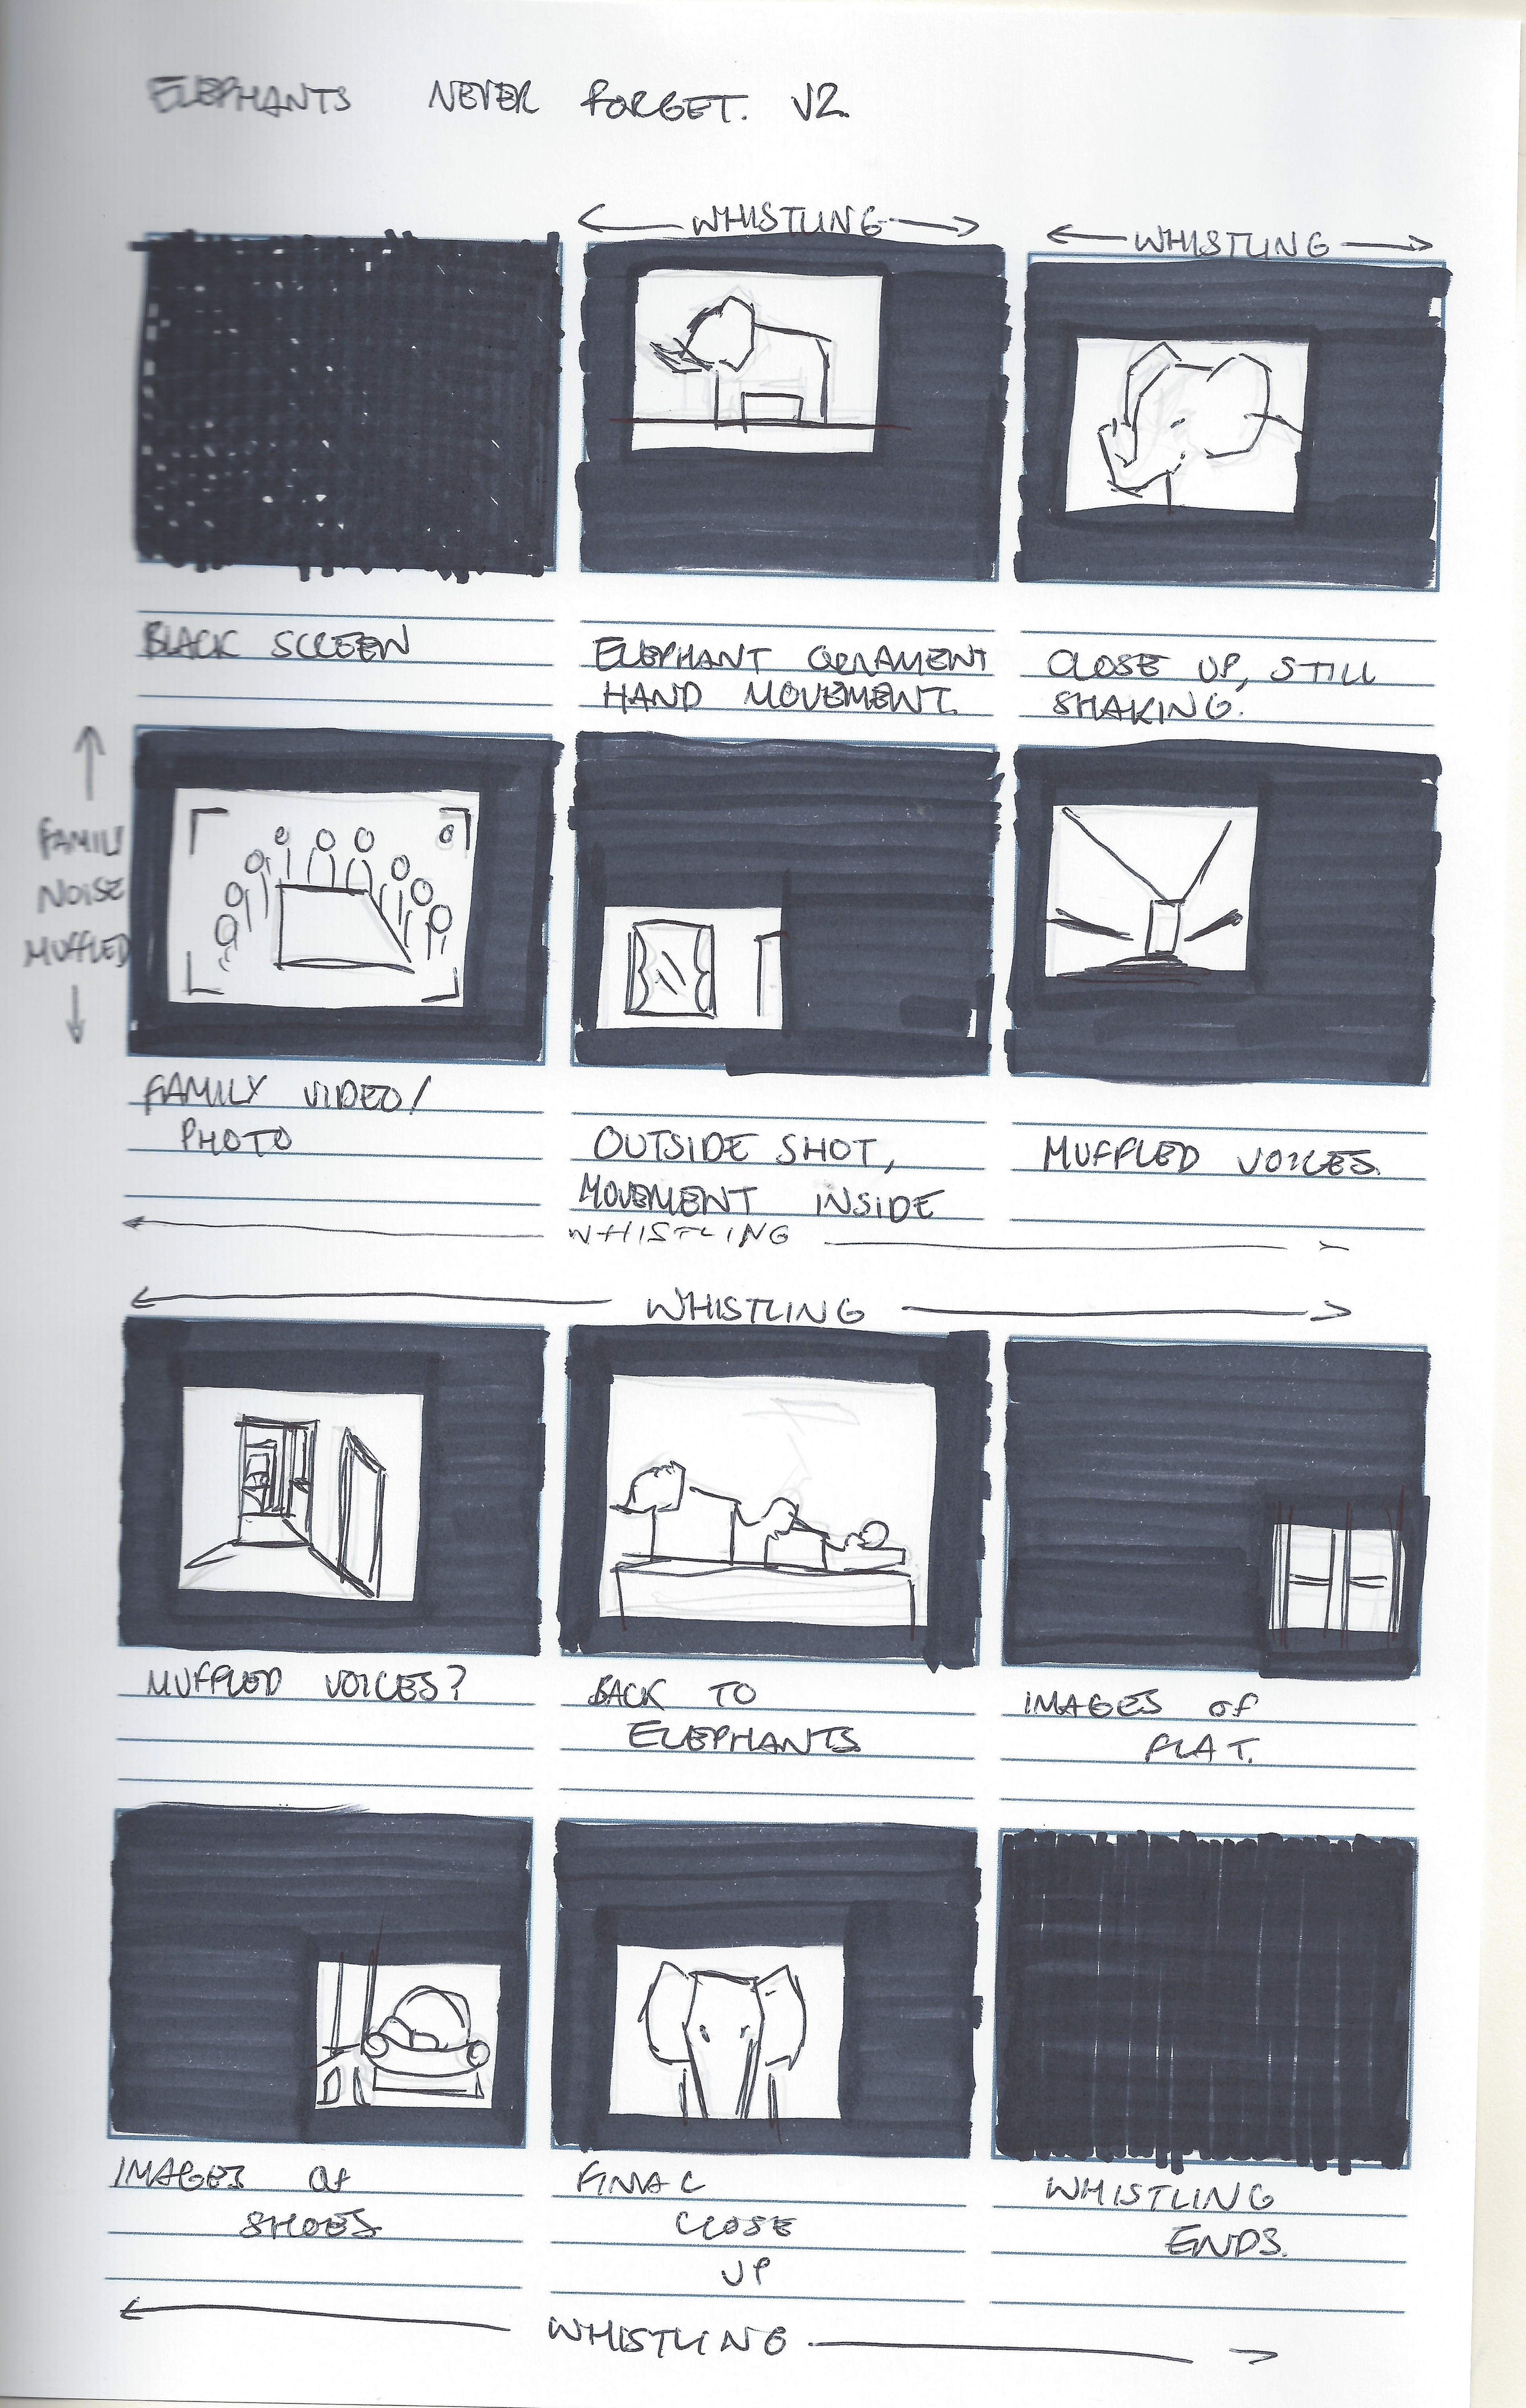 ELEPHANTS NEVER FORGET. V2.
WHISTLING
WHISTLING
BLACK SCREEN
ELEPHANT ORNAMENT
HAND MOVEMENT.
CLOSE UP, STILL
SHAKING.
FAMILY
NOISE
MUFFLED
FAMILY VIDEO/
PHOTO
OUTSIDE SHOT,
MOVEMENT INSIDE
MUFFLED VOICES.
WHISTLING
WHISTLING
MUFFLED VOICES?
BACK TO
ELEPHANTS
IMAGES OF
FLAT.
IMAGES OF
SHOES.
FINAL
CLOSE
UP
WHISTLING
ENDS.
WHISTLING